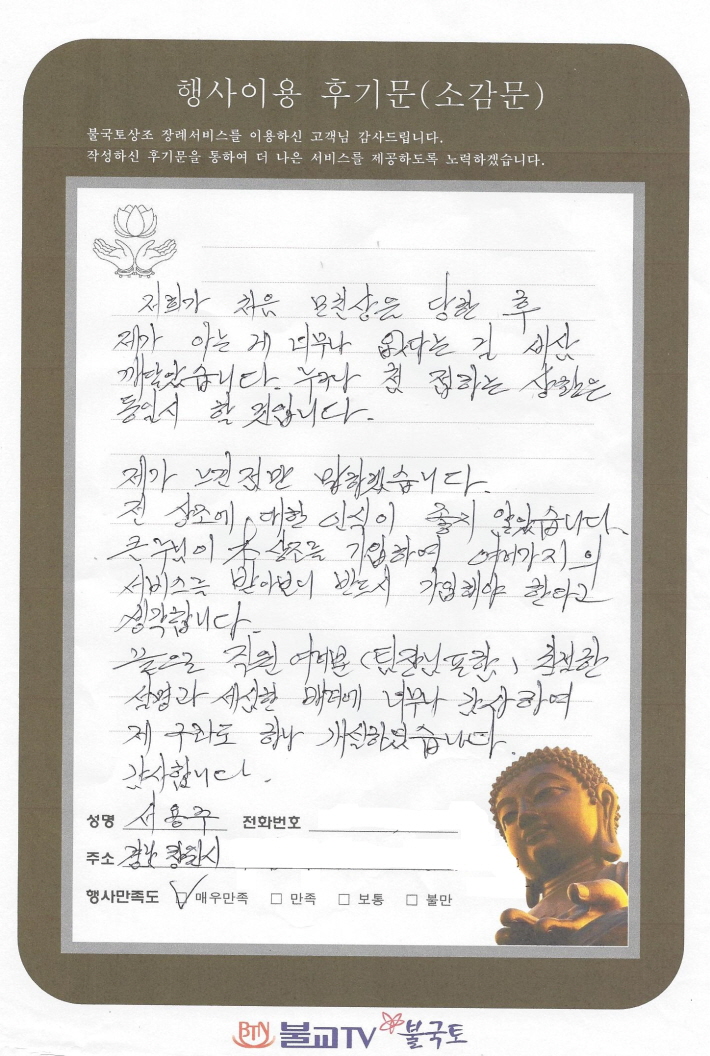 행사이용 후기문(소감문)
불국토상조 장례서비스를 이용하신 고객님 감사드립니다.
작성하신 후기문을 통하여 더 나은 서비스를 제공하도록 노력하겠습니다.
저희가 처음 모친상을 당한 후
제가 아는 게 너무나 없다는 걸 새삼
깨달았습니다. 누구나 첨 접하는 상황은
동일시 할 것입니다.
제가 느낀 점만 말하겠습니다.
전 상조에 대한 인식이 좋지 않았습니다.
큰누님이 本 상조를 가입하여 여러가지의
서비스를 받아보니 반드시 가입해야 한다고
생각합니다.
끝으로 직원 여러분 (팀장님 포함) 친절한
설명과 세심한 배려에 너무나 감사하여
제 구좌도 하나 개설하였습니다.
감사합니다.
성명 서용주 전화번호
주소 경남 창원시
행사만족도 ☑ 매우만족 □ 만족 □ 보통 □ 불만
BTN 불교TV 불국토